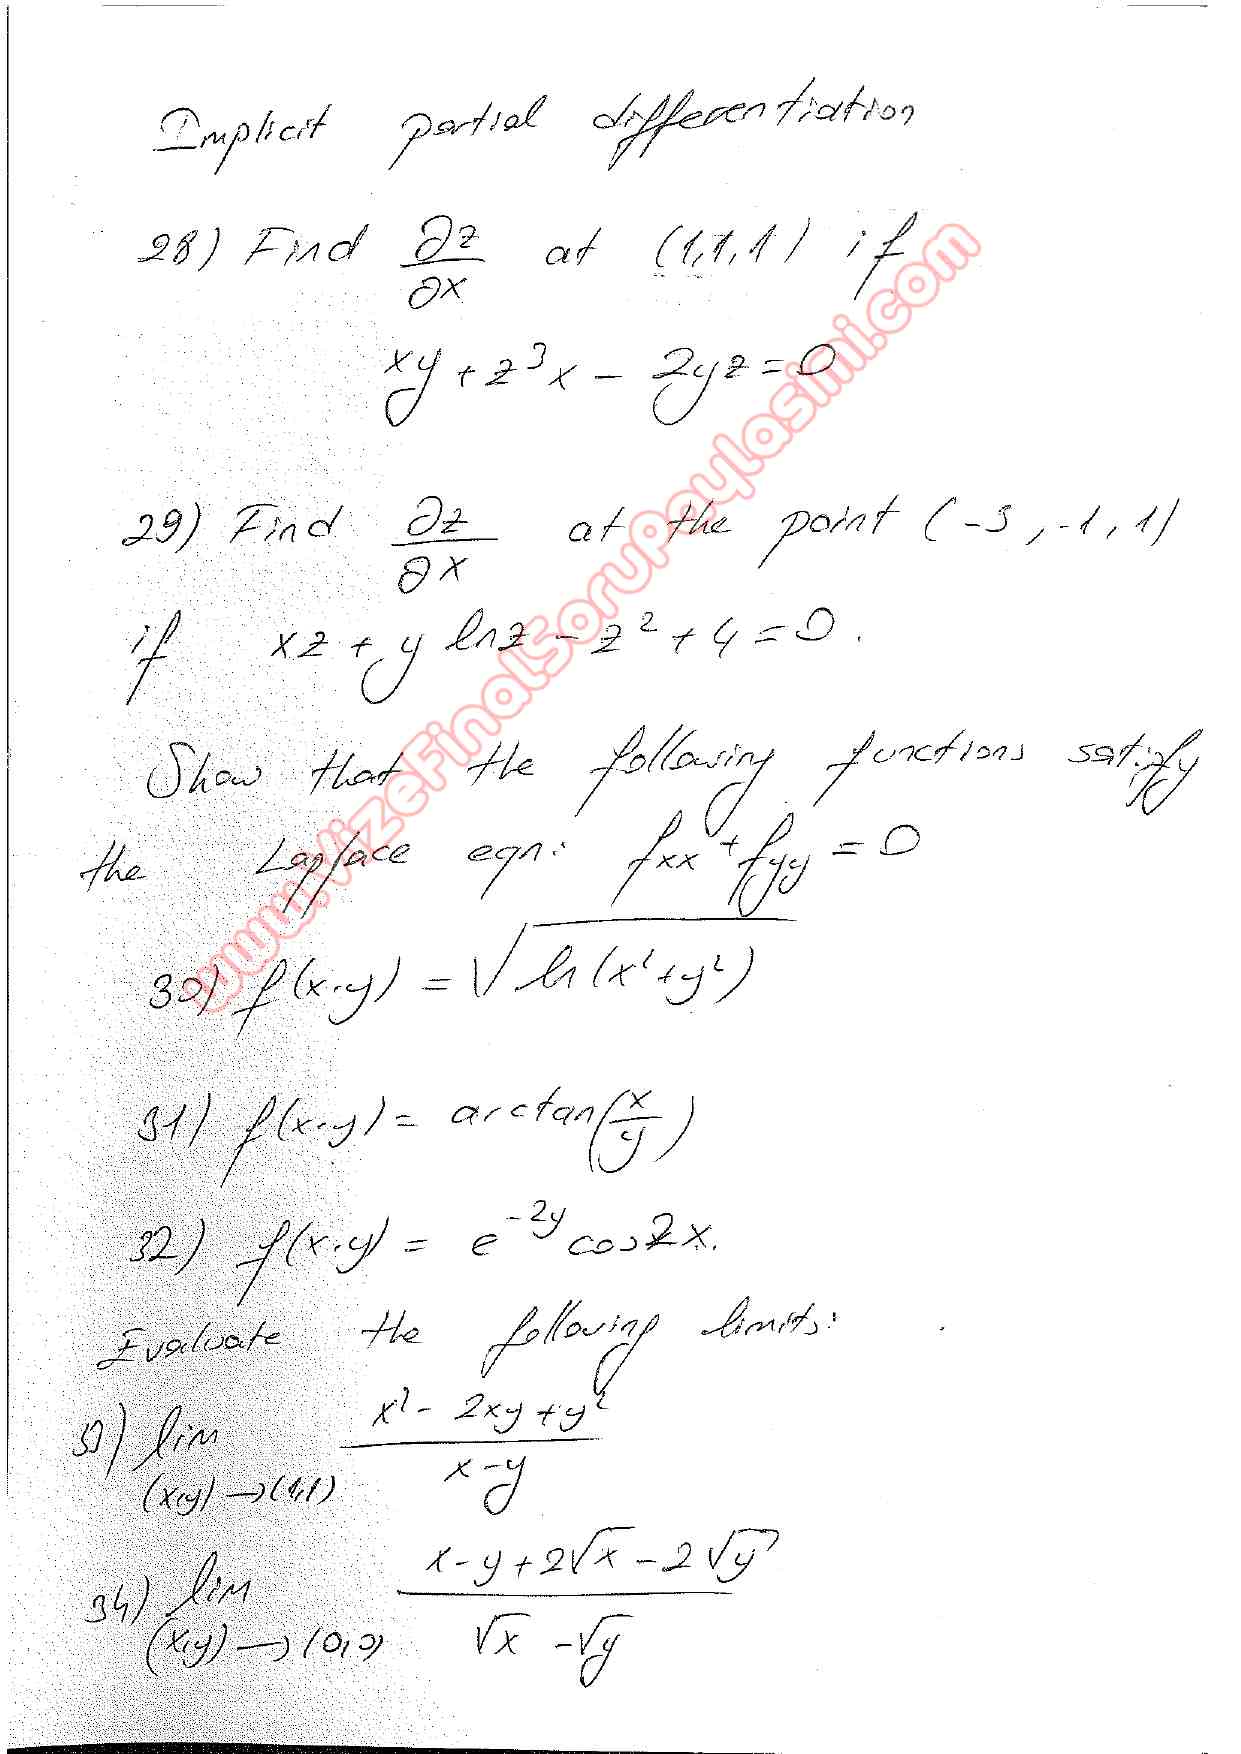 Implicit partial differentiation
28) Find ∂z/∂x at (1,1,1) if
xy + z³x - 2yz = 0
29) Find ∂z/∂x at the point (-3, -1, 1)
if xz + y lnz - z² + 4 = 0.
Show that the following functions satisfy
the Lapface eqn: fxx + fyy = 0
30) f(x,y) = √ln(x²+y²)
31) f(x,y) = arctan(x/y)
32) f(x,y) = e^-2y cos2x.
Evaluate the following limits:
33) lim (x,y)→(1,1) x² - 2xy + y² / x - y
34) lim (x,y)→(0,0) x - y + 2√x - 2√y / √x - √y
www.VizeFinalSoruPaylasimi.com